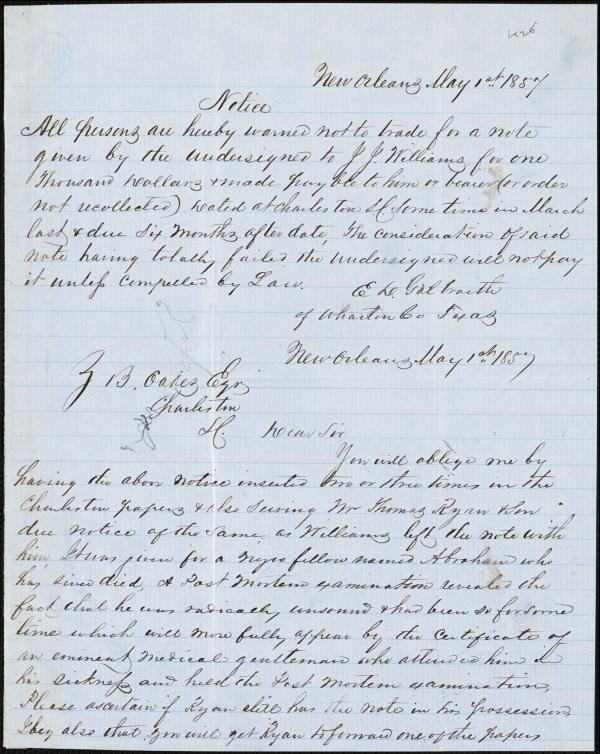 426
New Orleans May 1st 1857
Notice
All persons are hereby warned not to trade for a note
given by the undersigned to J J Williams for one
Thousand Dollars & made payable to him or bearer (or order
not recollected) Dated at Charleston SC some time in March
last & due Six Months after date, The consideration of said
note having totally failed the undersigned will not pay
it unless compelled by Law.
E D Galbraith
of Wharton Co Texas
New Orleans May 1st 1857
Z B. Oakes Esqr
Charleston
SC. Dear Sir
You will oblige me by
having the above notice inserted two or three times in the
Charleston papers & also serving Mr Thomas Ryan & Son
due notice of the same, as Williams left the note with
him, It was given for a Negro fellow named Abraham who
has since died, A Post Mortem examination revealed the
fact that he was radically unsound & had been so for some
time which will more fully appear by the certificate of
an eminent medical gentleman who attended him in
his sickness and held the Post Mortem examination,
Please ascertain if Ryan still has the note in his possession,
I beg also that you will get Ryan to forward one of the papers